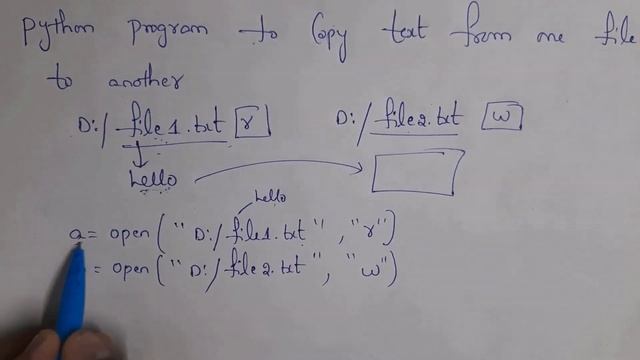 Python program to Copy text from one file
to another
D:/ file1.txt r D:/ file2.txt w
Hello
Hello
a = open("D:/file1.txt", "r")
= open("D:/file2.txt", "w")